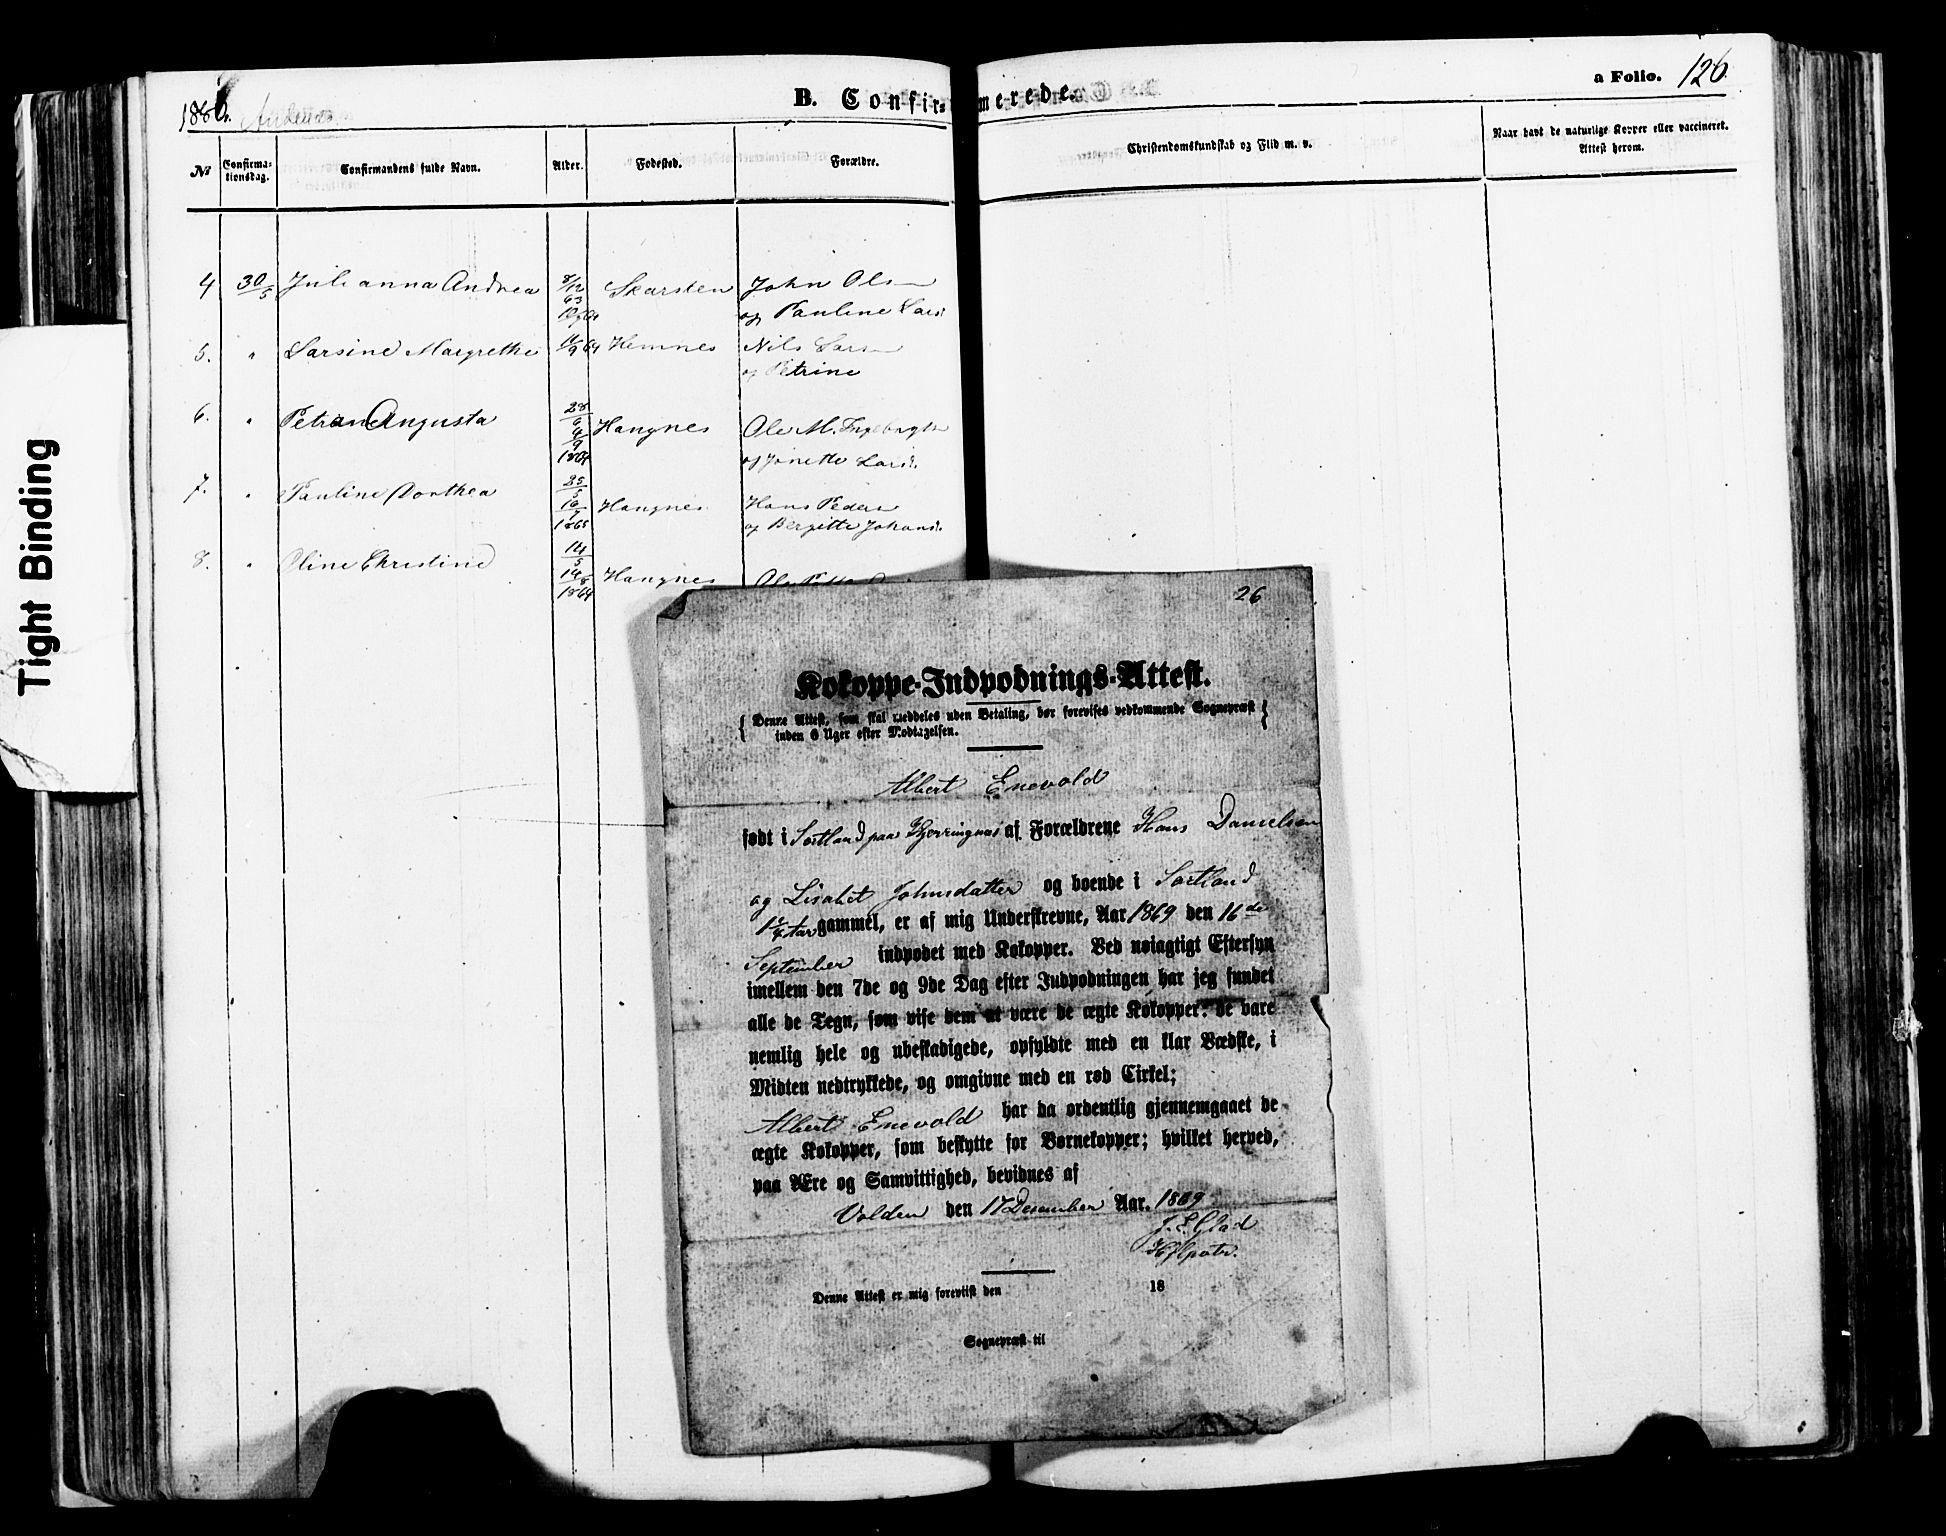 1880. Andenes
B. Confirmerede.
a Folio. 126
№
Confirma-
tionsdag.
Confirmandens fulde Navn.
Alder.
Fødested.
Forældre.
Christendomskundskab og Flid m. v.
Naar havt de naturlige Kopper eller vaccineret.
Attest herom.
4 30/5 Julianna Andrea 8/12 63 Skarsten John Olsen
og Pauline Lars:
5. " Larsine Margrethe 11/9 64 Hemnes Nils Larsen
og Petrine
6. " Petrine Augusta 28/6 4/9 1864 Haugnes Ole M. Ingebrigts
og Jonette Lars:
7. " Pauline Dorthea 25/5 16/7 1865 Haugnes Hans Peders
og Bergitte Johans:
8. " Oline Christine 14/5 14/8 1864 Haugnes Ole
Tight Binding
26
Kokoppe-Indpodnings-Attest.
{ Denne Attest, som skal meddeles uden Betaling, bør forevises vedkommende Sognepræst }
inden 6 Uger efter Modtagelsen.
Albert Enevold
født i Sortland paa Kjerringnes af Forældrene Hans Danielsen
og Lisabet Johnsdatter og boende i Sortland
1 1/4 Aar gammel, er af mig Underskrevne, Aar 1869 den 16de
September indpodet med Kokopper. Ved nøiagtigt Eftersyn
imellem den 7de og 9de Dag efter Indpodningen har jeg fundet
alle de Tegn, som vise dem at være de ægte Kokopper: de vare
nemlig hele og ubeskadigede, opfyldte med en klar Vædske, i
Midten nedtrykkede, og omgivne med en rød Cirkel;
Albert Enevold har da ordentlig gjennemgaaet de
ægte Kokopper, som beskytte for Børnekopper; hvilket herved,
paa Ære og Samvittighed, bevidnes af
Volden den 17 Desember Aar. 1869
J. E. Glad
Hjlpvtr.
Denne Attest er mig foreviist den 18
Sognepræst til